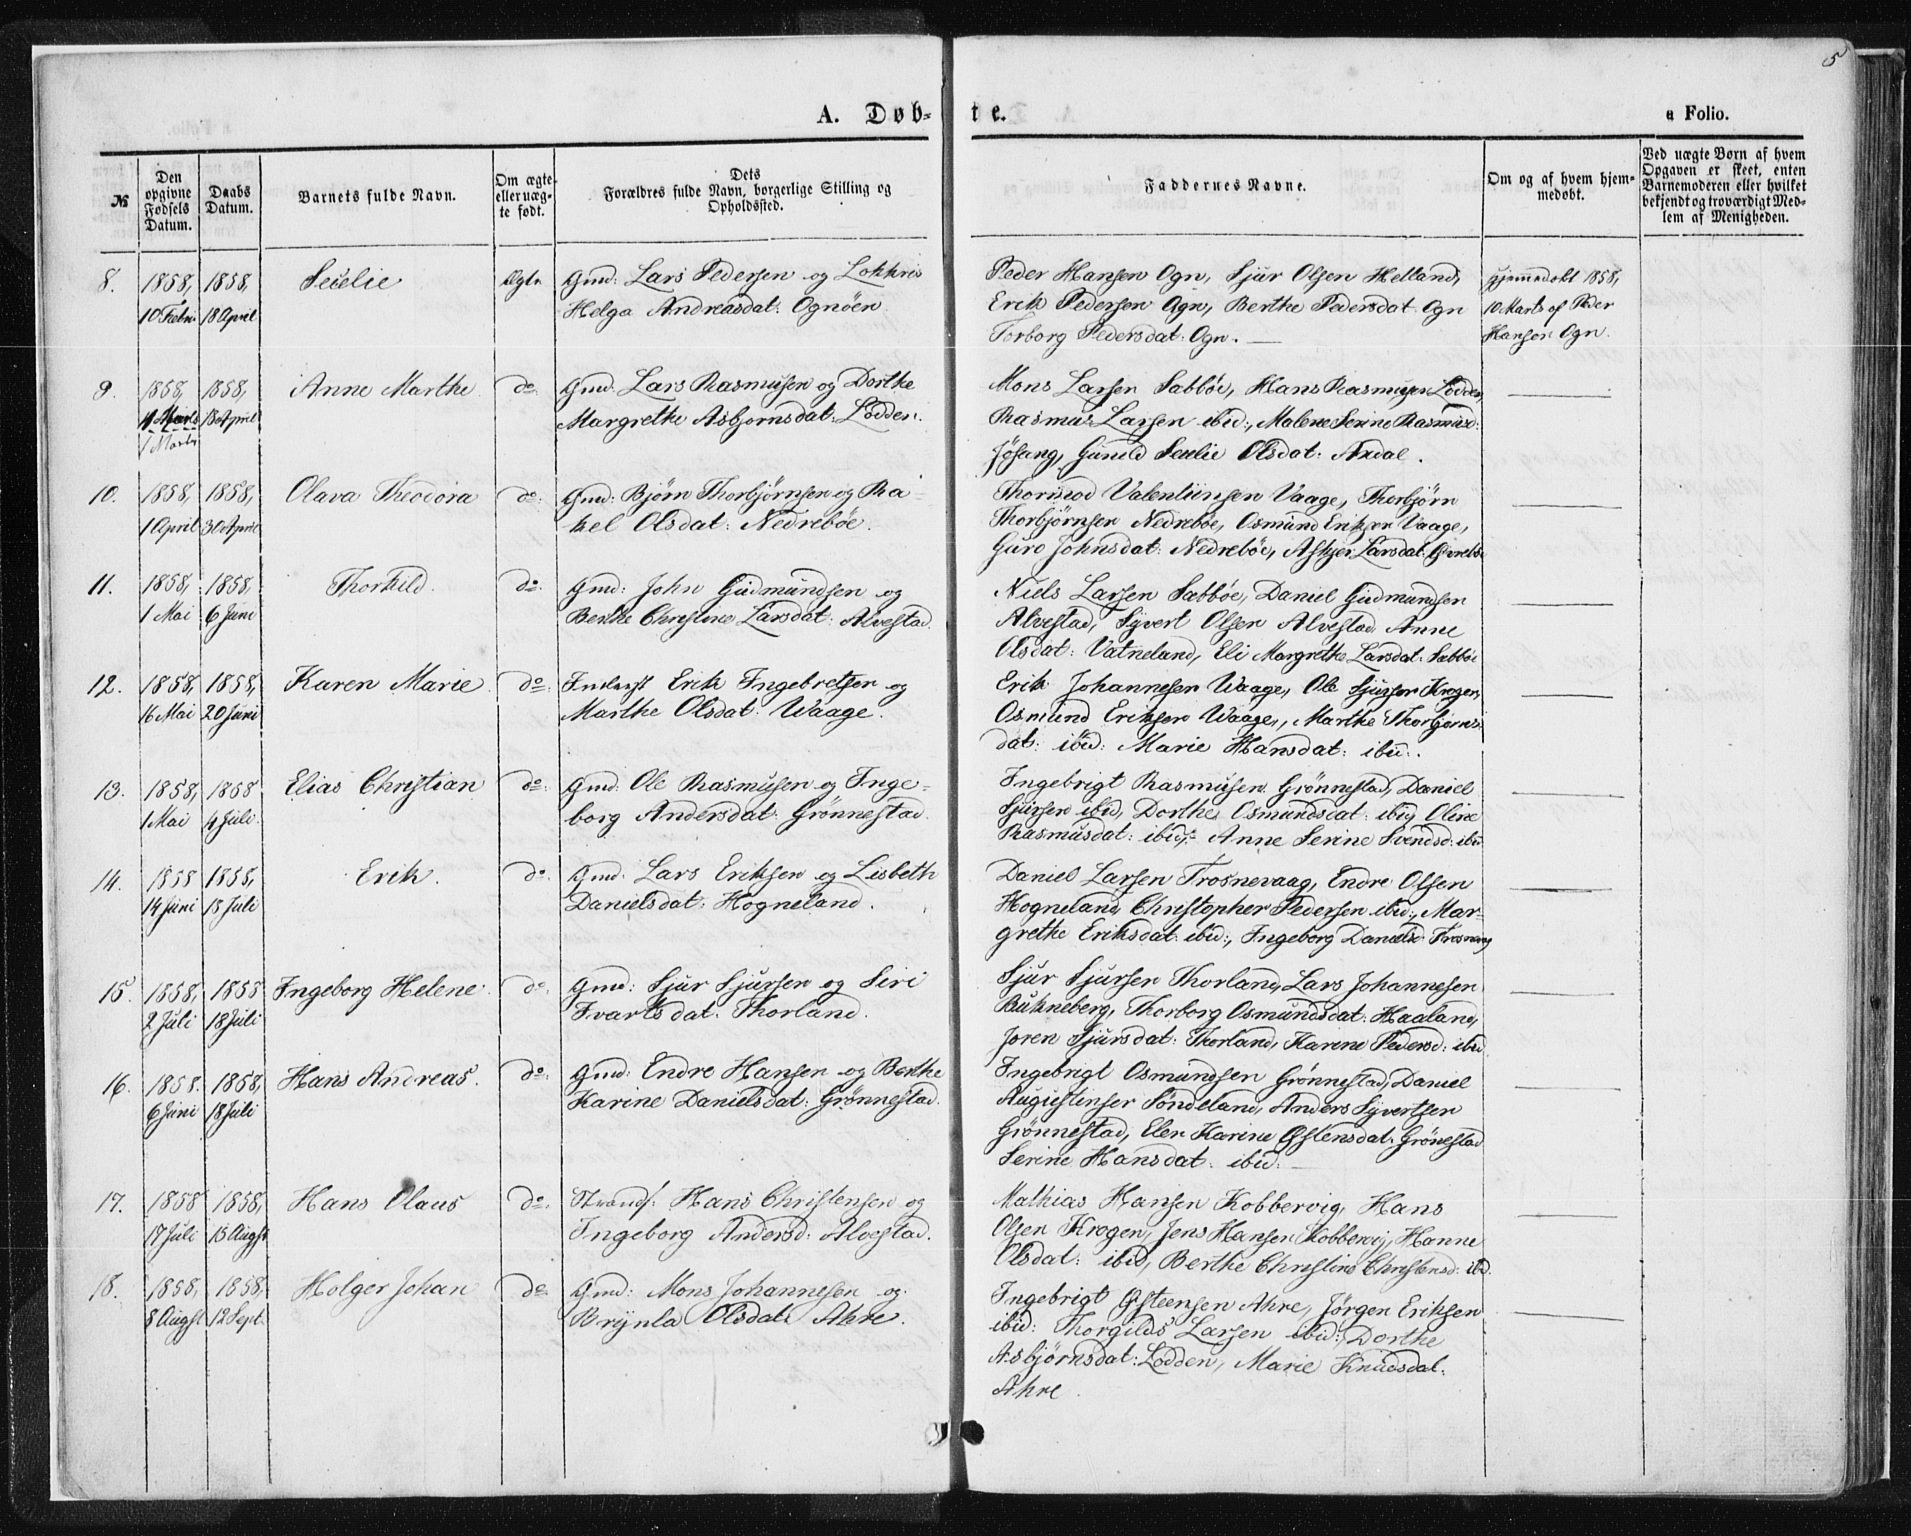 5
A. Døb-te.
a Folio.
№
Den opgivne Fødsels Datum.
Daabs Datum.
Barnets fulde Navn.
Om ægte eller uægte født.
Dets Forældres fulde Navn, borgerlige Stilling og Opholdssted.
Faddernes Navne.
Om og af hvem hjemmedøbt.
Ved uægte Børn af hvem Opgaven er skeet, enten Barnemoderen eller hvilket bekjendt og troværdigt Medlem af Menigheden.
8. 1858, 10 Febr. 1858, 18 April Secelie Ægte
Gmd: Lars Pedersen og
Helga Andreasdat: Ognöen
Peder Hansen Ogn, Sjur Olsen Helland,
Erik Pedersen Ogn, Berthe Pedersdat Ogn
Torborg Pedersdat: Ogn.
Hjemmedøbt 1858,
10 Marts af Peder
Hansen Ogn.
9. 1858, 1 Marts 1858, 18 April Anne Marthe do.
Gmd: Lars Rasmusen og Dorthe
Margrethe Asbjørnsdat: Lodden.
Mons Larsen Sæbböe, Hans Rasmusen Lodden,
Rasmus Larsen ibid:, Malene Serine Rasmusd:
Jösang, Gunild Secelie Olsdat: Aadal.
10. 1858, 1 April 1858, 30 April Olava Theodora do.
Gmd: Bjørn Thorbjørnsen og Ra-
kel Olsdat: Nedreböe.
Thormod Valentinsen Vaage, Thorbjörn
Thorbjørnsen Nedreböe, Osmund Eriksen Vaage,
Guro Johnsdat: Nedreböe, Askjer Larsdat:
11. 1858, 1 Mai 1858, 6 Juni Thorkild. do.
Gmd: John Gudmundsen og
Berthe Christine Larsdat: Alvestad.
Niels Larsen Sæbböe, Daniel Gudmundsen
Alvestad, Syvert Olsen Alvestad Anne
Olsdat: Vatneland, Eli Margrethe Larsdat: Sæbböe
12. 1858, 16 Mai 1858, 20 Juni Karen Marie do.
Inderst Erik Ingebretsen og
Marthe Olsdat: Waage.
Erik Johannesen Waage, Ole Sjursen Krogen,
Osmund Eriksen Waage, Marthe Thorbjørns-
dat: ibid: Marie Hansdat: ibid:.
13. 1858, 1 Mai 1858 4 Juli. Elias Christian do.
Gmd: Ole Rasmusen og Inge-
borg Andersdat: Grönnestad.
Ingebrigt Rasmusen Grönnestad, Daniel
Sjursen ibid, Dorthe Osmundsdat: ibid, Oline
Rasmusdat: ibid, Anne Serine Svendsd: ibid
14. 1858 14 Juni 1858, 18 Juli Erik. do.
Gmd: Lars Eriksen og Lisbeth
Danielsdat: Hogneland.
Daniel Larsen Trosnevaag, Endre Olsen
Hogneland, Christopher Pedersen ibid:, Mar-
grethe Eriksdat: ibid:, Ingeborg Danielsd:
15. 1858, 2 Juli 1858 18 Juli Ingeborg Helene do.
Gmd: Sjur Sjursen og Siri
Ivartsdat: Thorland.
Sjur Sjursen Thorland, Lars Johannesen
Bukneberg, Thorborg Osmundsdat: Haaland,
Joren Sjursdat: Thorland, Karine Pedersd: ibid
16. 1858. 6 Juni 1858, 18 Juli Hans Andreas. do.
Gmd: Endre Hansen og Berthe
Karine Danielsdat: Grönnestad.
Ingebrigt Osmundsen Grönnestad, Daniel
Augustinsen Söndeland, Anders Syvertsen
Grönnestad, Elen Karine Östensdat: Grönestad
Serine Hansdat: ibid:
17. 1858 17 Juli 1858, 15 Augst Hans Olaus do.
Strands: Hans Christensen og
Ingeborg Andersd: Alvestad.
Mathias Hansen Kobbervig, Hans
Olsen Krogen, Jens Hansen Kobbervig, Hanne
Olsdat: ibid, Berthe Christine Christensd: ibd.
18. 1858, 8 Augst 1858, 12 Sept. Holger Johan do.
Gmd: Mons Johannesen og
Brynla Olsdat: Ahre.
Ingebrigt Östeensen Ahre, Jörgen Eriksen
ibid: Thorgilds Larsen ibid:, Dorthe
Asbjørnsdat: Lodden, Marie Knudsdat:
Ahre.